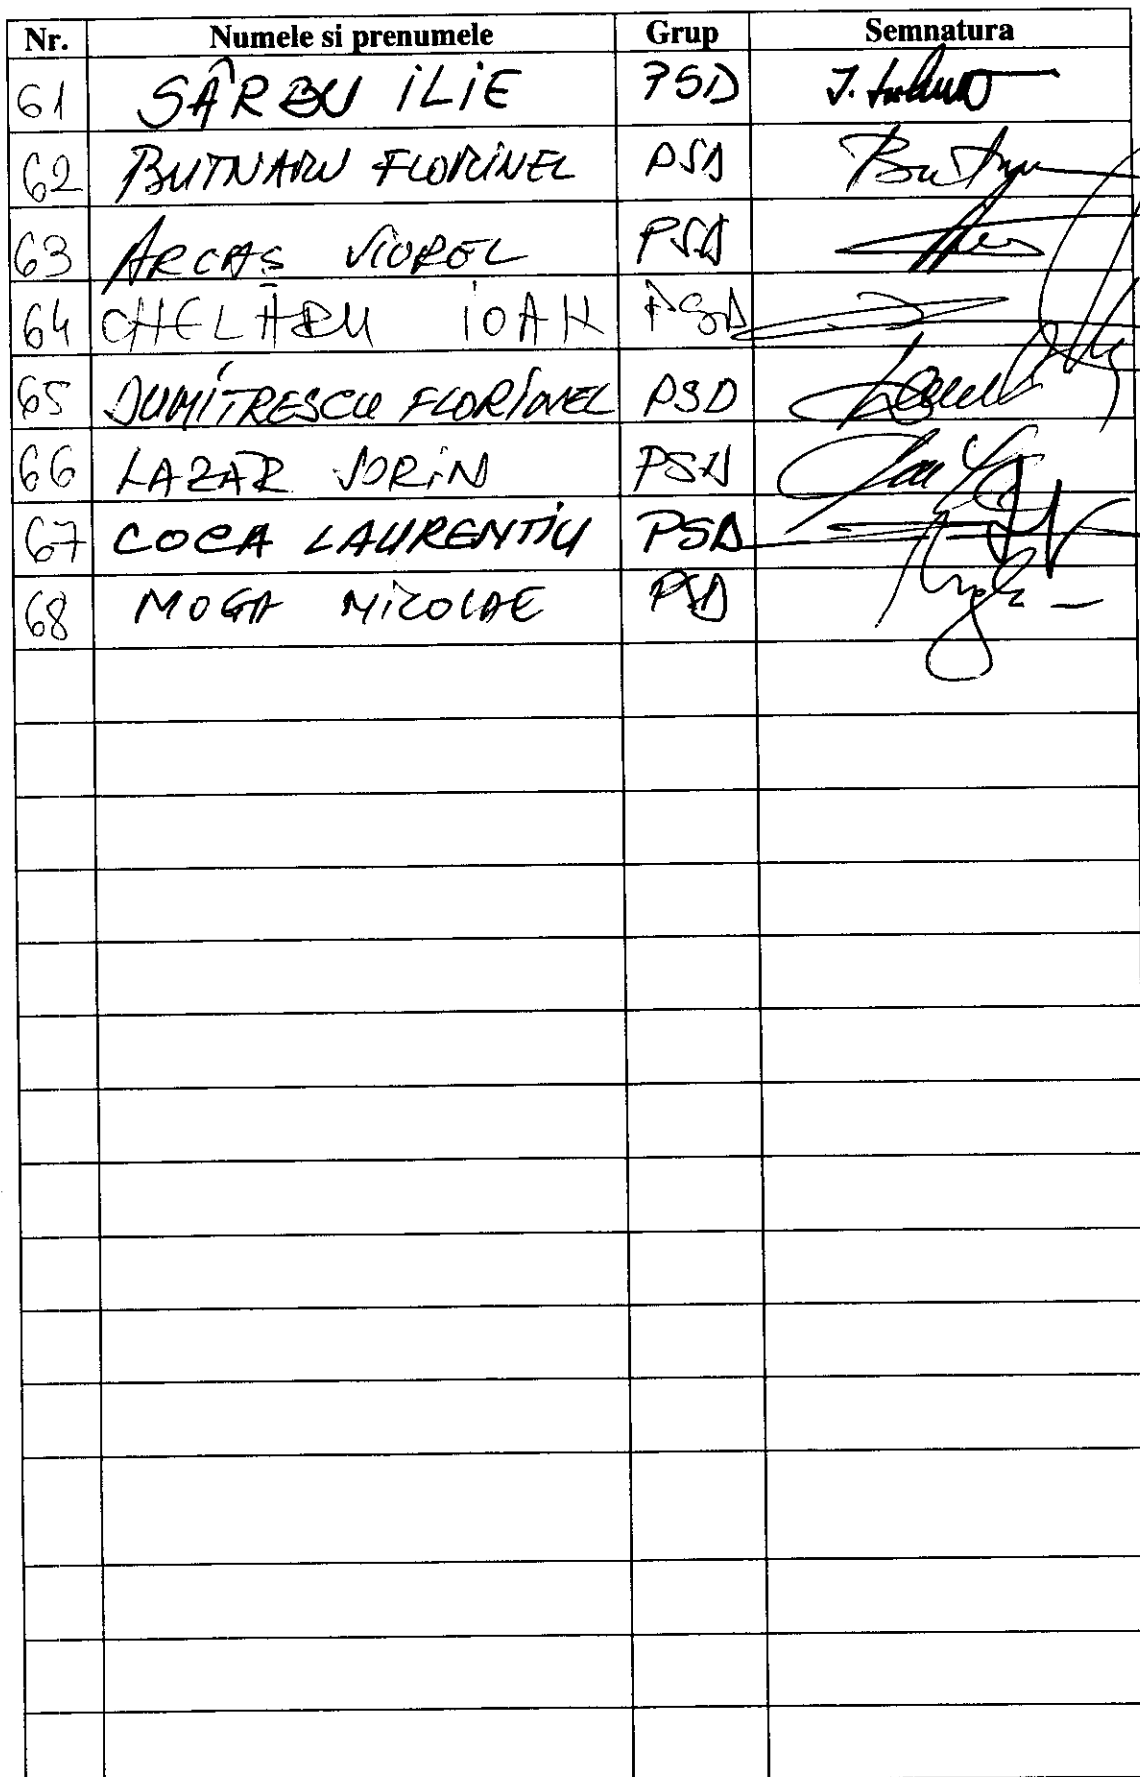 Nr. Numele si prenumele Grup Semnatura
61 SÂRBU ILIE PSD
62 BUTNARU FLORINEL PSD
63 ARCAȘ VIOREL PSD
64 CHELARU IOAN PSD
65 DUMITRESCU FLORINEL PSD
66 LAZAR SORIN PSD
67 COCA LAURENTIU PSD
68 MOGA NICOLAE PSD